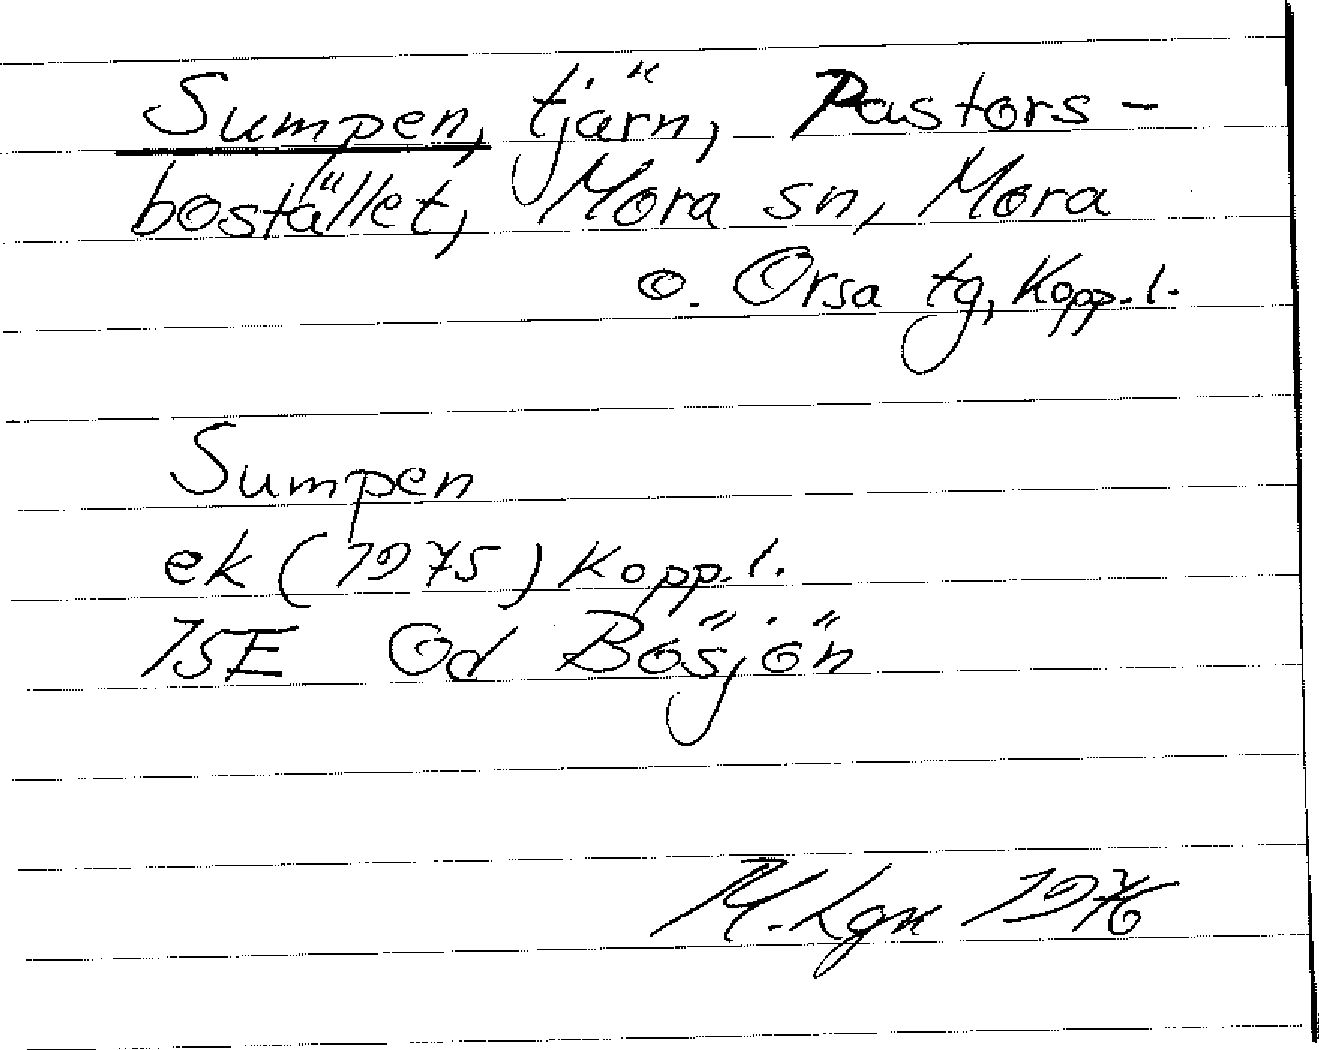 Sumpen, tjärn, Pastors-
bostället, Mora sn, Mora
o. Orsa tg, Kopp. l.
Sumpen
ek (1975) Kopp. l.
15E Od Bösjön
M. Lgn 1976